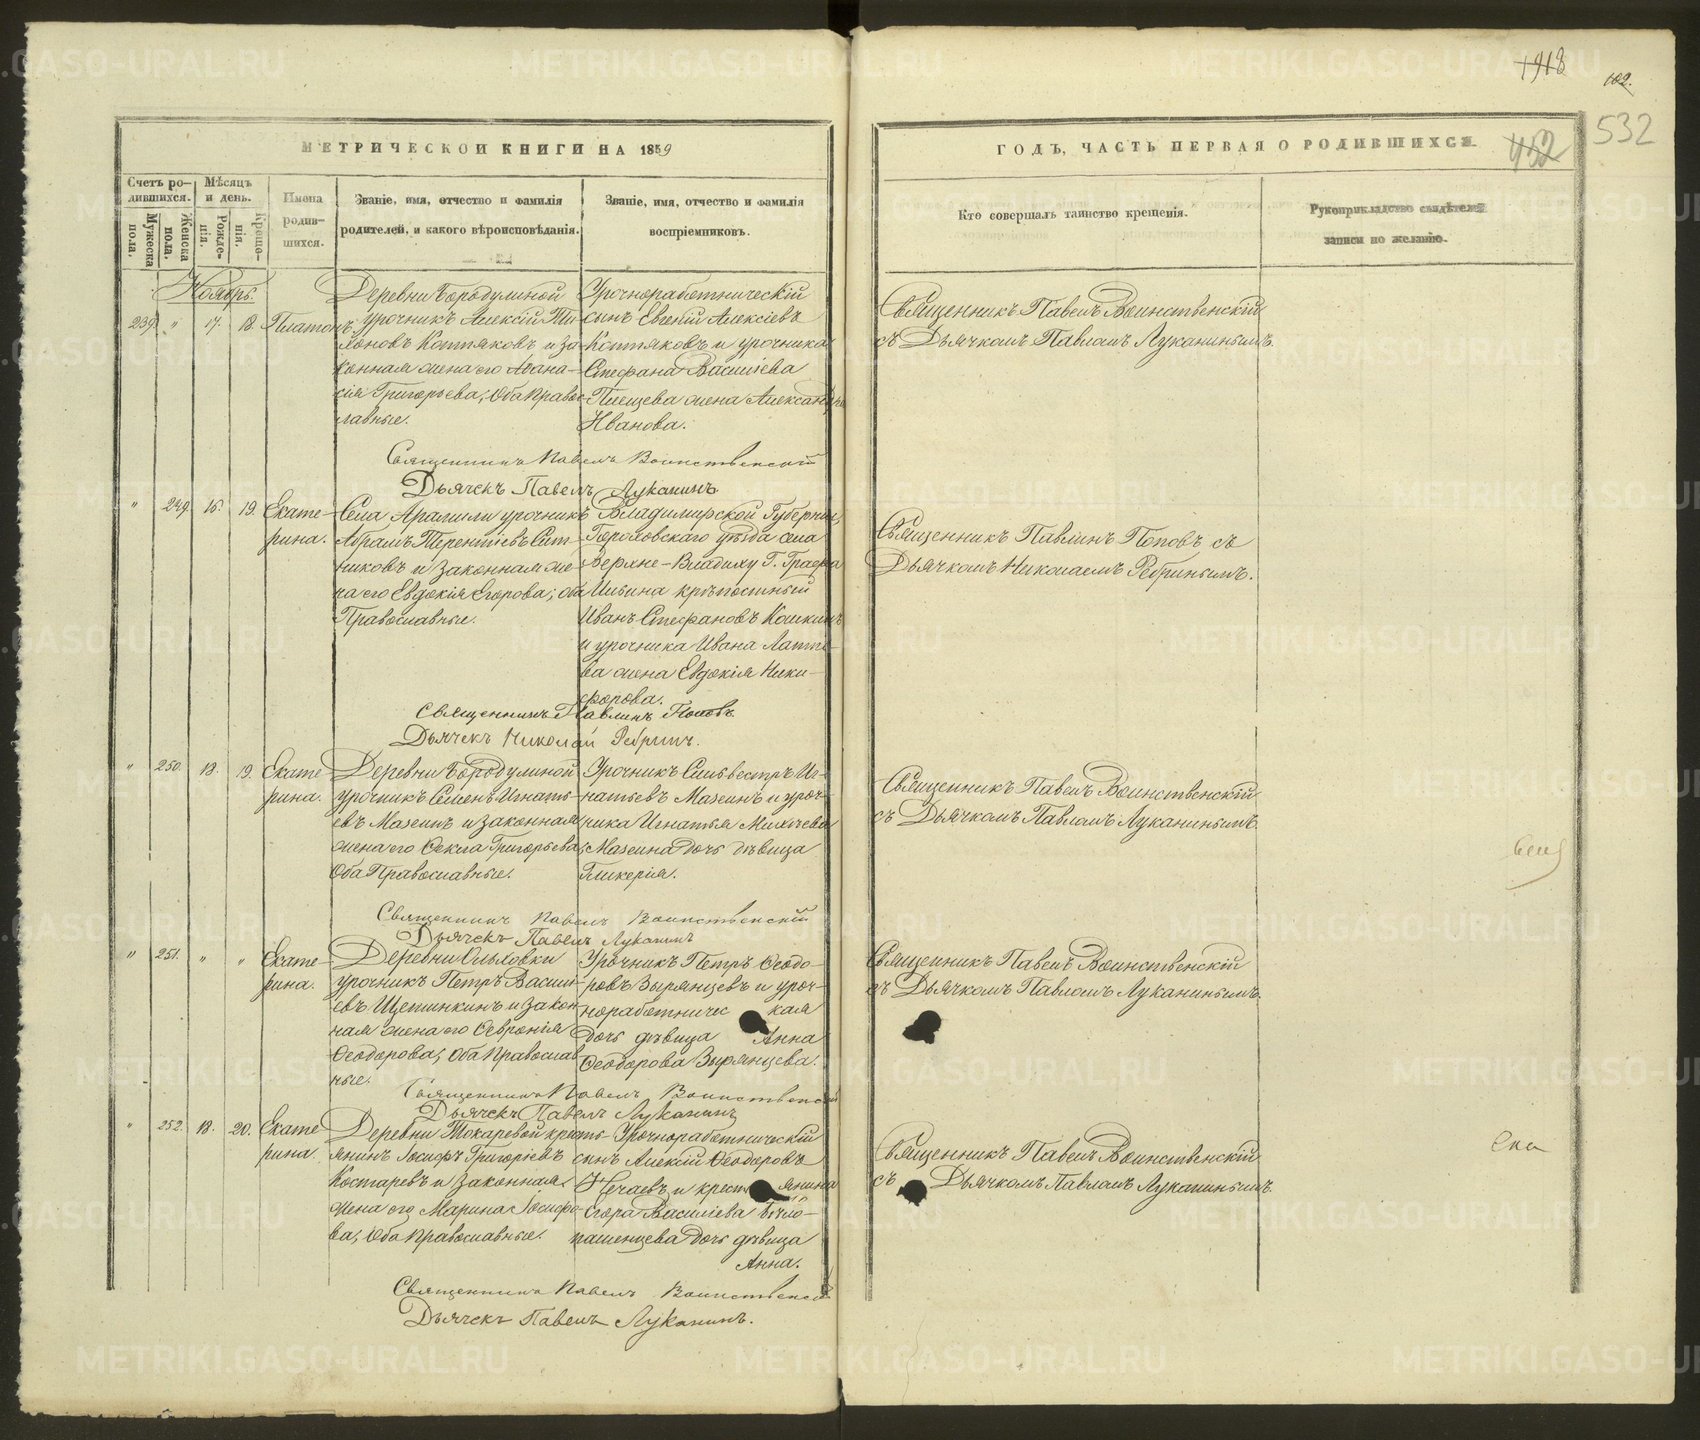 1918
102.
532
452
МЕТРИЧЕСКОЙ КНИГИ НА 1859
ГОДЪ, ЧАСТЬ ПЕРВАЯ О РОДИВШИХСЯ.
Счетъ ро-
дившихся.
Мѣсяцъ
и день.
Мужеска
пола.
Женска
пола.
Рожде-
нія.
Креще-
нія.
Имена
родив-
шихся.
Званіе, имя, отчество и фамилія
родителей, и какого вѣроисповѣданія.
Званіе, имя, отчество и фамилія
воспріемниковъ.
Кто совершалъ таинство крещенія.
Рукоприкладство свидѣтелей
записи по желанію.
Ноябрь.
239. " 17. 18. Платонъ.
Деревни Бородулиной
урочникъ Алексій Ти-
моновъ Коттяковъ и за-
конная жена его Аѳана-
сія Григорьева; Оба Право-
славные.
Урочноработническій
сынъ Евгеній Алексіевъ
Коттяковъ и урочника
Стефана Василіева
Плещева жена Александра
Иванова.
Священникъ Павелъ Воинственскій
съ Дьячкомъ Павломъ Луканинымъ.
Священникъ Павелъ Воинственскій
Дьячекъ Павелъ Луканинъ
" 249. 16. 19. Екате-
рина.
Села Арамили урочникъ
Абрамъ Терентіевъ Сит-
никовъ и законная же-
на его Евдокія Егорова; оба
Православные.
Владимирской Губерніи,
Гороховскаго уѣзда села
Верхне-Владиху Г. Графа
Ильина крѣпостный
Иванъ Стефановъ Кошкинъ
и урочника Ивана Лапте-
ва жена Евдокія Ники-
форова.
Священникъ Павлинъ Поповъ съ
Дьячкомъ Николаемъ Ребринымъ.
Священникъ Павлинъ Поповъ
Дьячекъ Николай Ребринъ.
" 250. 18. 19. Екате
рина.
Деревни Бородулиной
урочникъ Семенъ Игнать-
евъ Мазеинъ и законная
жена его Ѳекла Григорьева,
Оба Православные.
Урочникъ Сильвестръ Иг-
натьевъ Мазеинъ и уроч-
ника Игнатья Михеева
Мазеина дочь дѣвица
Гликерія.
Священникъ Павелъ Воинственскій
съ Дьячкомъ Павломъ Луканинымъ.
Священникъ Павелъ Воинственскій
Дьячекъ Павелъ Луканинъ
" 251. " " Екате-
рина.
Деревни Ольховки
урочникъ Петръ Василь-
евъ Щетинкинъ и закон-
ная жена его Ѳевронія
Ѳеодорова, оба православ
ные.
Урочникъ Петръ Ѳеодо-
ровъ Зырянцевъ и уроч-
норабо́тничес кая
дочь дѣвица Анна
Ѳеодорова Зырянцева.
Священникъ Павелъ Воинственскій
съ Дьячкомъ Павломъ Луканинымъ.
Священникъ Павелъ Воинственскій
Дьячекъ Павелъ Луканинъ
" 252. 18. 20. Екате
рина.
Деревни Токаревой кресть-
янинъ Іосифъ Григоріевъ
Костаревъ и законная
жена его Марина Іосифо-
ва, Оба православные.
Урочноработническій
сынъ Алексій Ѳеодоровъ
Нечаевъ и крест янина
Егора Василіева Бѣло-
пашенцева дочь дѣвица
Анна.
Священникъ Павелъ Воинственскій
съ Дьячкомъ Павломъ Луканинымъ.
Священникъ Павелъ Воинственскій
Дьячекъ Павелъ Луканинъ.
METRIKI.GASO-URAL.RU